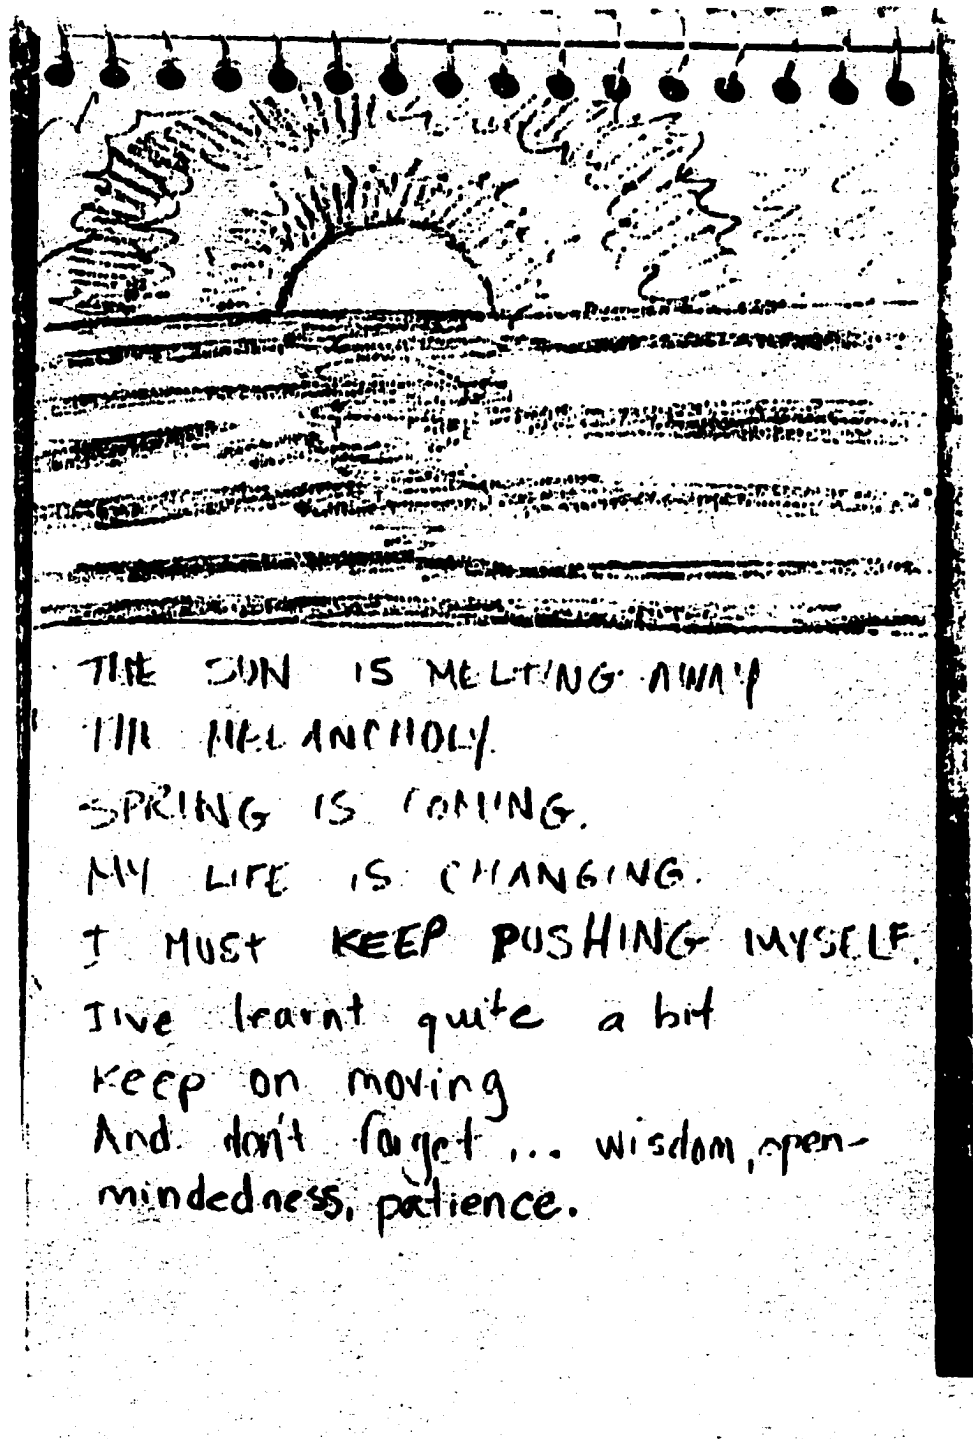 THE SUN IS MELTING AWAY
THE MELANCHOLY.
SPRING IS COMING.
MY LIFE IS CHANGING.
I MUST KEEP PUSHING MYSELF.
I've learnt quite a bit
Keep on moving
And don't forget ... wisdom, open-
mindedness, patience.